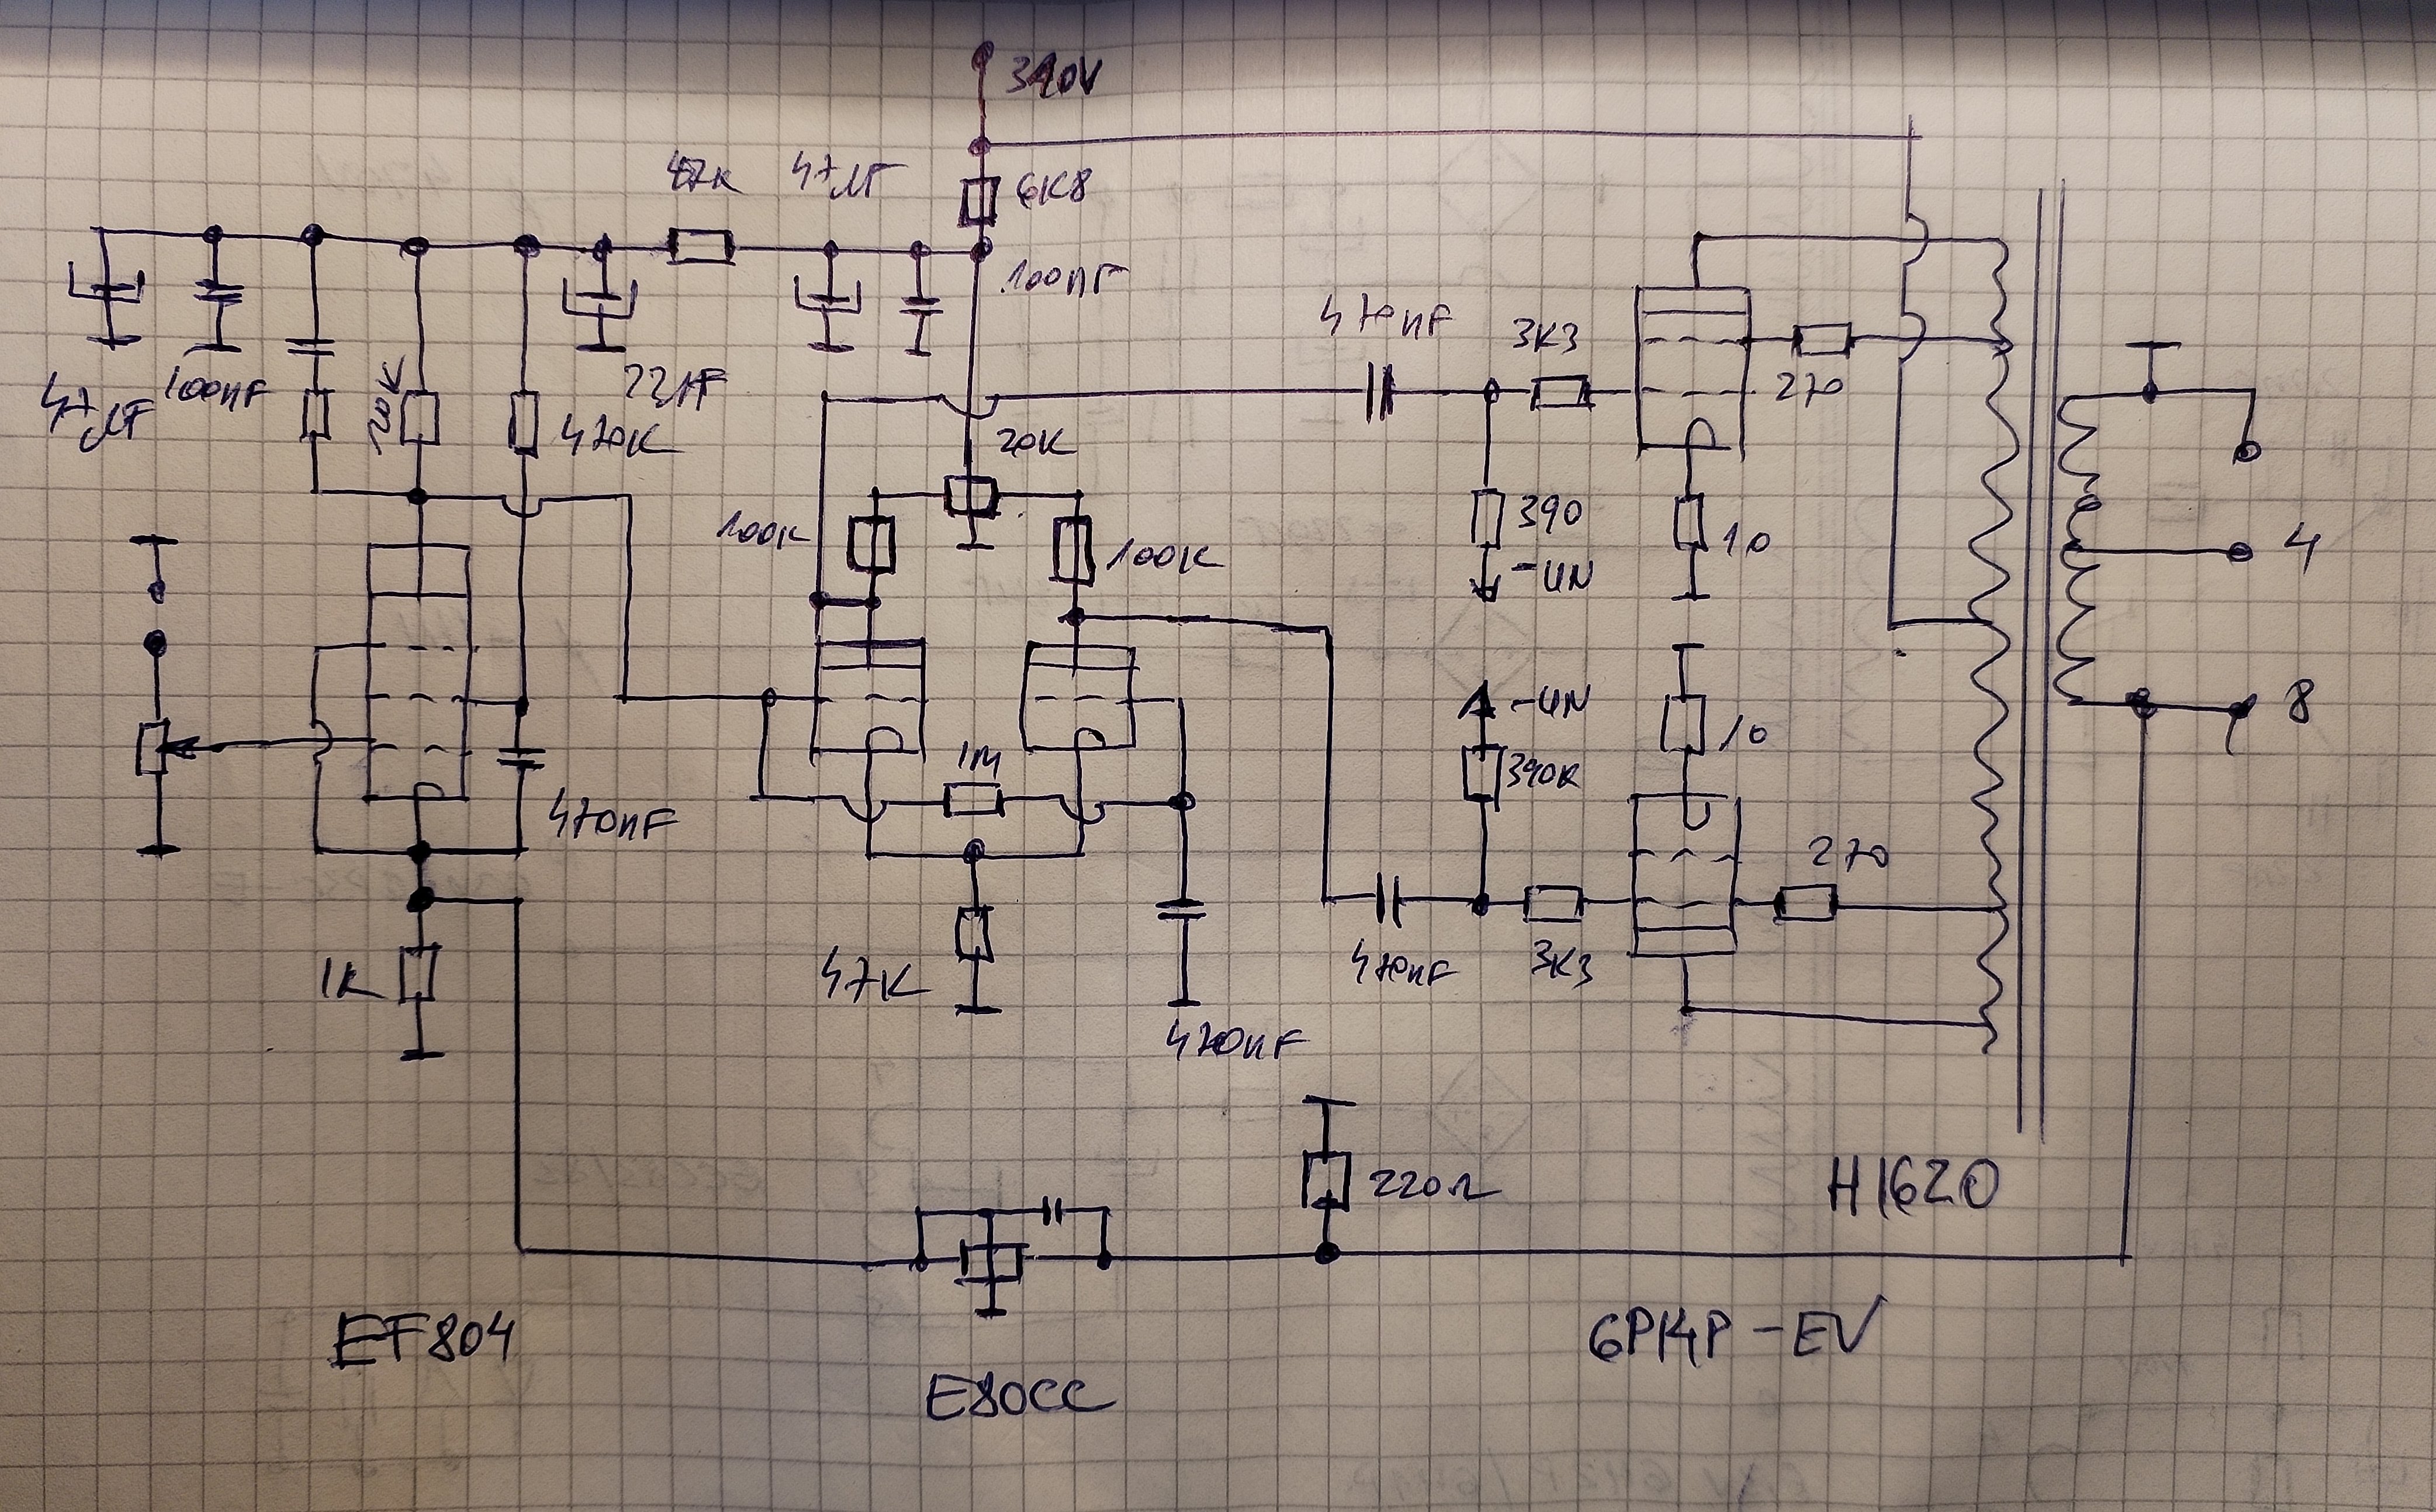 340V
47K
47µF
6K8
100nF
470nF
3K3
22µF
47µF
100nF
470K
20K
270
100K
100K
390
10
-UN
4
-UN
8
10
1M
390K
470nF
270
1K
47K
470nF
3K3
470nF
220Ω
H1620
EF804
E80CC
6P14P-EV